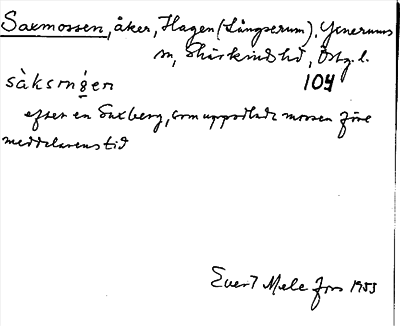 Saxmossen, åker, Hagen (Långserum), Yxnerums
sn, Skärkinds hd, Östg. l.
104
sàksmósen
efter en Saxberg, som uppodlade mossen före
meddelarens tid
Evert Melefors 1953